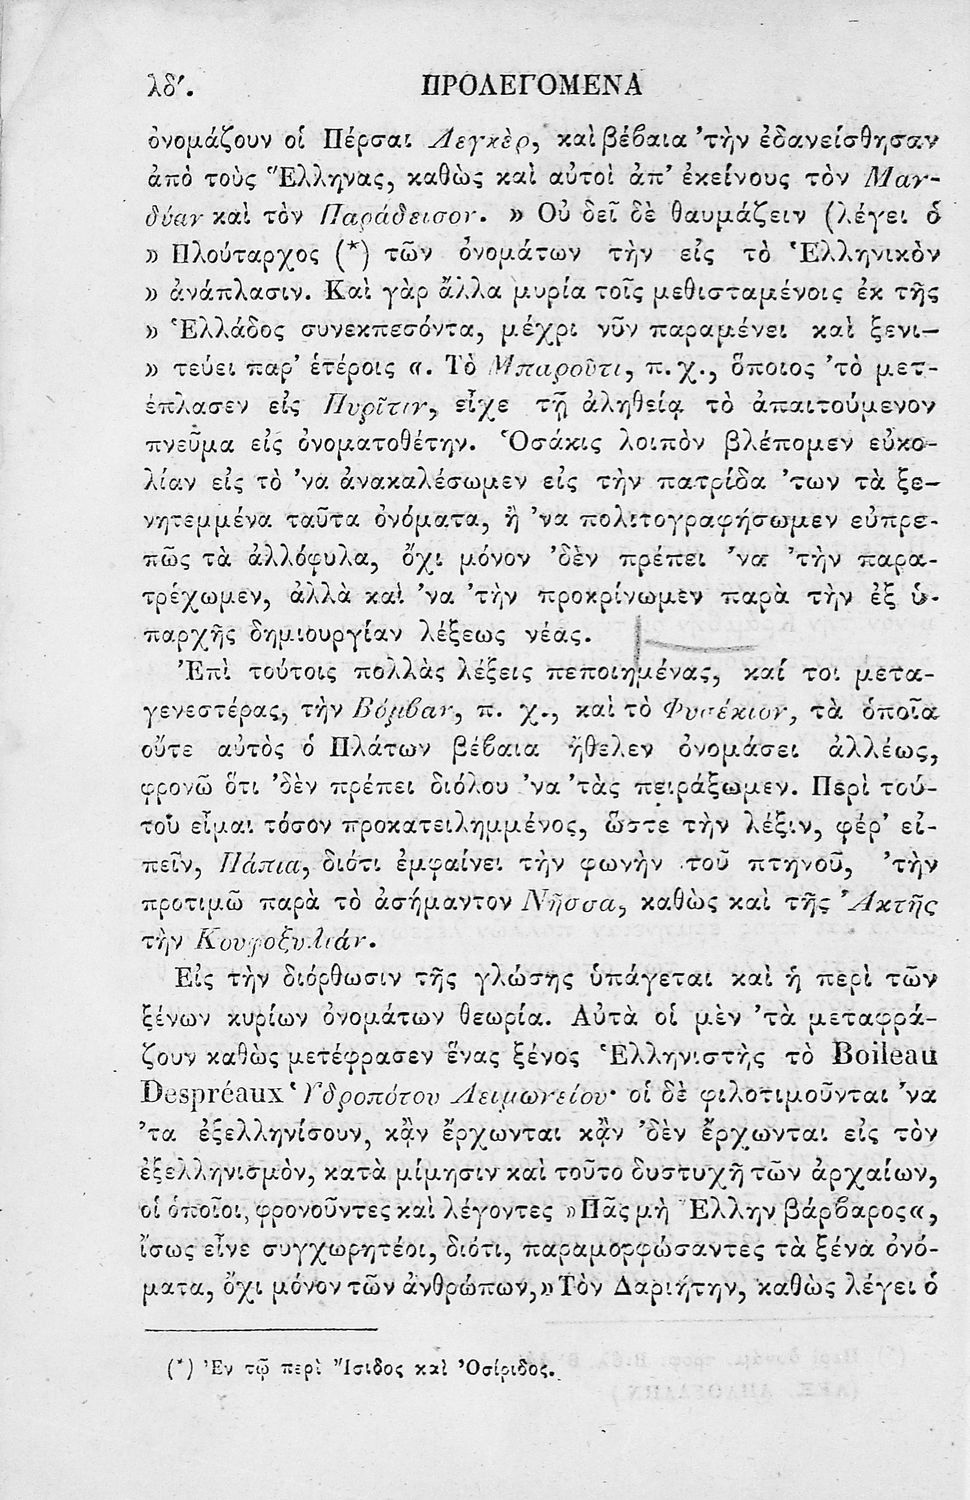 λδ′. ΠΡΟΛΕΓΟΜΕΝΑ
ὀνομάζουν οἱ Πέρσαι Λεγκὲρ, καὶ βέβαια ’τὴν ἐδανείσθησαν
ἀπὸ τοὺς Ἕλληνας, καθὼς καὶ αὐτοὶ ἀπ’ ἐκείνους τὸν Μαν-
δύαν καὶ τὸν Παράδεισον. » Οὐ δεῖ δὲ θαυμάζειν (λέγει ὁ
» Πλούταρχος (*) τῶν ὀνομάτων τὴν εἰς τὸ Ἑλληνικὸν
» ἀνάπλασιν. Καὶ γὰρ ἄλλα μυρία τοῖς μεθισταμένοις ἐκ τῆς
» Ἑλλάδος συνεκπεσόντα, μέχρι νῦν παραμένει καὶ ξενι–
» τεύει παρ’ ἑτέροις «. Τὸ Μπαροῦτι, π. χ., ὅποιος ’τὸ μετ-
έπλασεν εἰς Πυρῖτιν, εἶχε τῇ ἀληθείᾳ τὸ ἀπαιτούμενον
πνεῦμα εἰς ὀνοματοθέτην. Ὁσάκις λοιπὸν βλέπομεν εὐκο-
λίαν εἰς τὸ ’να ἀνακαλέσωμεν εἰς τὴν πατρίδα ’των τὰ ξε–
νητεμμένα ταῦτα ὀνόματα, ἢ ’να πολιτογραφήσωμεν εὐπρε-
πῶς τὰ ἀλλόφυλα, ὄχι μόνον ’δὲν πρέπει ’να ’τὴν παρα-
τρέχωμεν, ἀλλὰ καὶ ’να ’τὴν προκρίνωμεν παρὰ τὴν ἐξ ὑ-
παρχῆς δημιουργίαν λέξεως νέας.
Ἐπὶ τούτοις πολλὰς λέξεις πεποιημένας, καί τοι μετα-
γενεστέρας, τὴν Βόμβαν, π. χ., καὶ τὸ Φυσέκιον, τὰ ὁποῖα
οὔτε αὐτὸς ὁ Πλάτων βέβαια ἤθελεν ὀνομάσει ἀλλέως,
φρονῶ ὅτι ’δὲν πρέπει διόλου ’να ’τὰς πειράξωμεν. Περὶ τού-
του εἶμαι τόσον προκατειλημμένος, ὥστε τὴν λέξιν, φέρ’ εἰ-
πεῖν, Πάπια, διότι ἐμφαίνει τὴν φωνὴν τοῦ πτηνοῦ, ’τὴν
προτιμῶ παρὰ τὸ ἀσήμαντον Νῆσσα, καθὼς καὶ τῆς Ἀκτῆς
τὴν Κουφοξυλιάν.
Εἰς τὴν διόρθωσιν τῆς γλώσης ὑπάγεται καὶ ἡ περὶ τῶν
ξένων κυρίων ὀνομάτων θεωρία. Αὐτὰ οἱ μὲν ’τὰ μεταφρά-
ζουν καθὼς μετέφρασεν ἕνας ξένος Ἑλληνιστὴς τὸ Boileau
Despréaux Ὑδροπότου Λειμωνείου· οἱ δὲ φιλοτιμοῦνται ’να
’τα ἐξελληνίσουν, κᾂν ἔρχωνται κᾂν ’δὲν ἔρχωνται εἰς τὸν
ἐξελληνισμὸν, κατὰ μίμησιν καὶ τοῦτο δυστυχῆ τῶν ἀρχαίων,
οἱ ὁποῖοι, φρονοῦντες καὶ λέγοντες »Πᾶς μὴ Ἕλλην βάρβαρος«,
ἴσως εἶνε συγχωρητέοι, διότι, παραμορφώσαντες τὰ ξένα ὀνό-
ματα, ὄχι μόνον τῶν ἀνθρώπων, »Τὸν Δαριήτην, καθὼς λέγει ὁ
(*) Ἐν τῷ περὶ Ἴσιδος καὶ Ὀσίριδος.